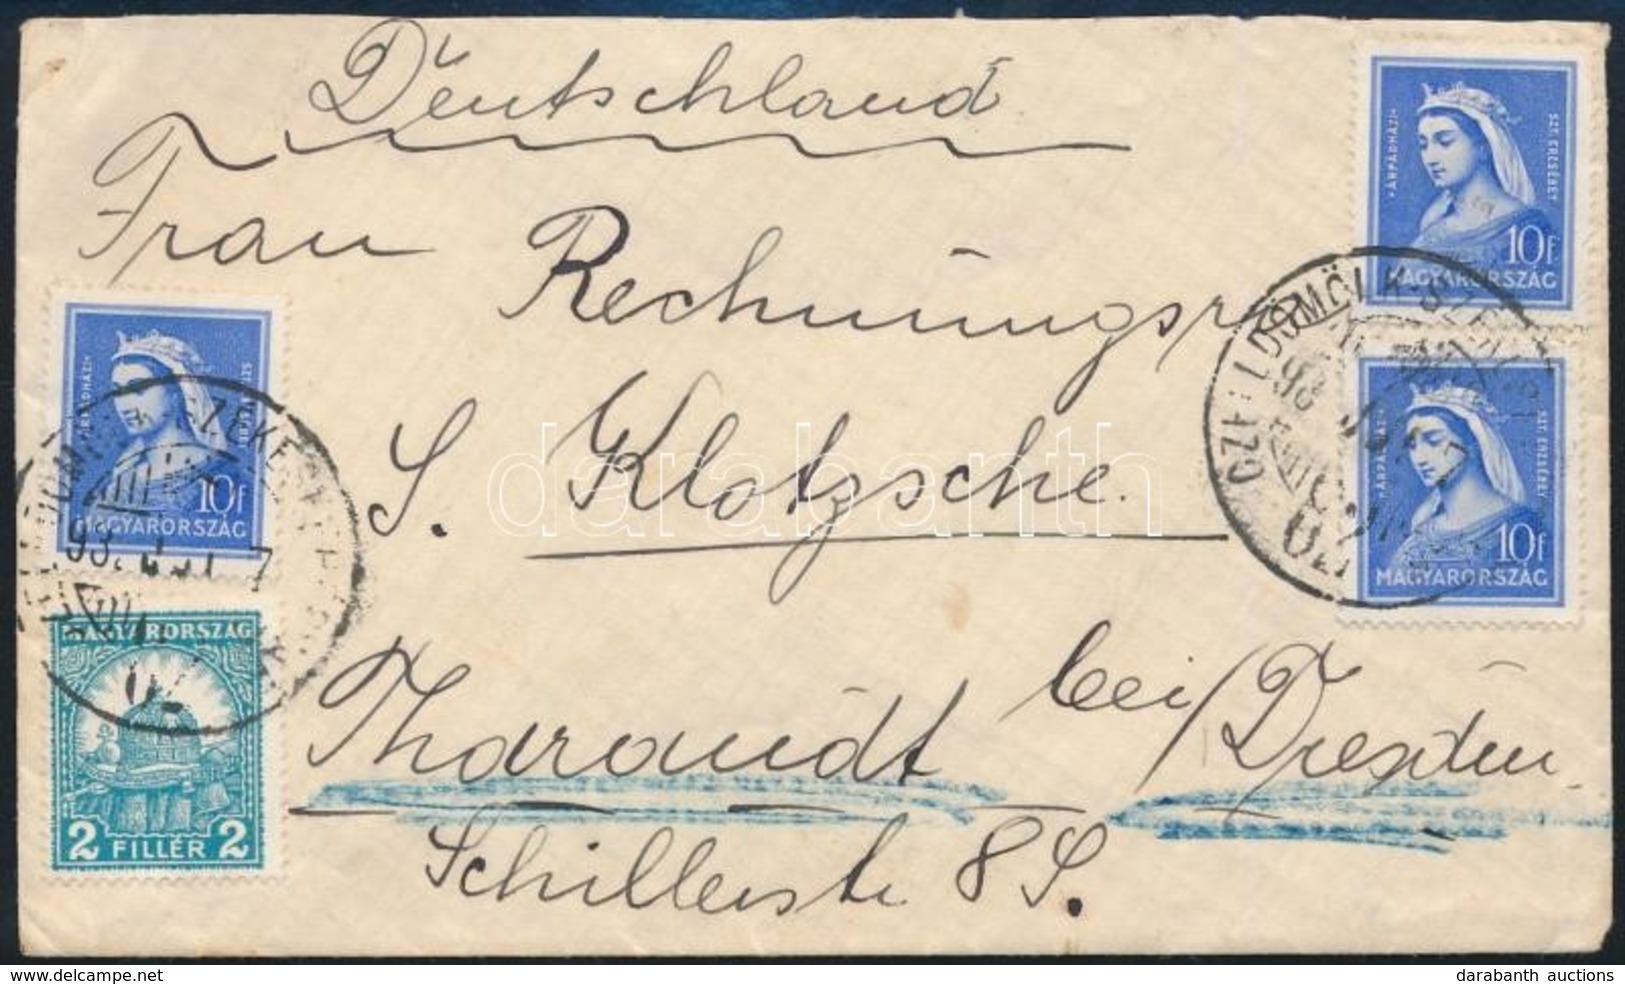 Deutschland
Frau Rechnungsr
S. Klotzsche.
Tharandt bei/Dresden
Schillerstr 8 S.
·ÁRPÁDHÁZI·
SZT. ERZSÉBET
10f
MAGYARORSZÁG
·ÁRPÁDHÁZI·
SZT. ERZSÉBET
10f
MAGYARORSZÁG
·ÁRPÁDHÁZI·
10f
MAGYARORSZÁG
MAGYARORSZÁG
2 FILLÉR 2
darabanth
delcampe.net
darabanth auctions